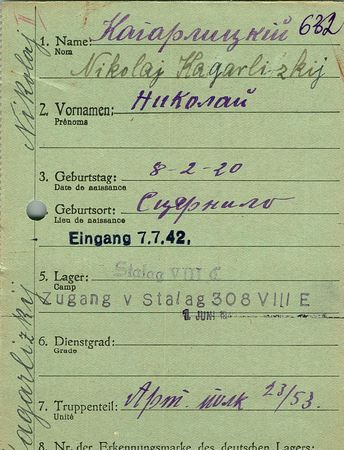 1. Name: Кагарлицкій 682
Nom
Nikolaj Kagarlizkij
2. Vornamen: Николай
Prénoms
3. Geburtstag: 8-2-20
Date de naissance
Geburtsort:
Lieu de naissance
Eingang 7.7.42.
5. Lager: Stalag VIII C
Camp
Zugang v Stalag 308 VIII E
1. JUNI
6. Dienstgrad:
Grade
7. Truppenteil: Арт. полк 23/53.
Unité
8. Nr. der Erkennungsmarke des deutschen Lagers:
Nikolaj
Kagarlizkij